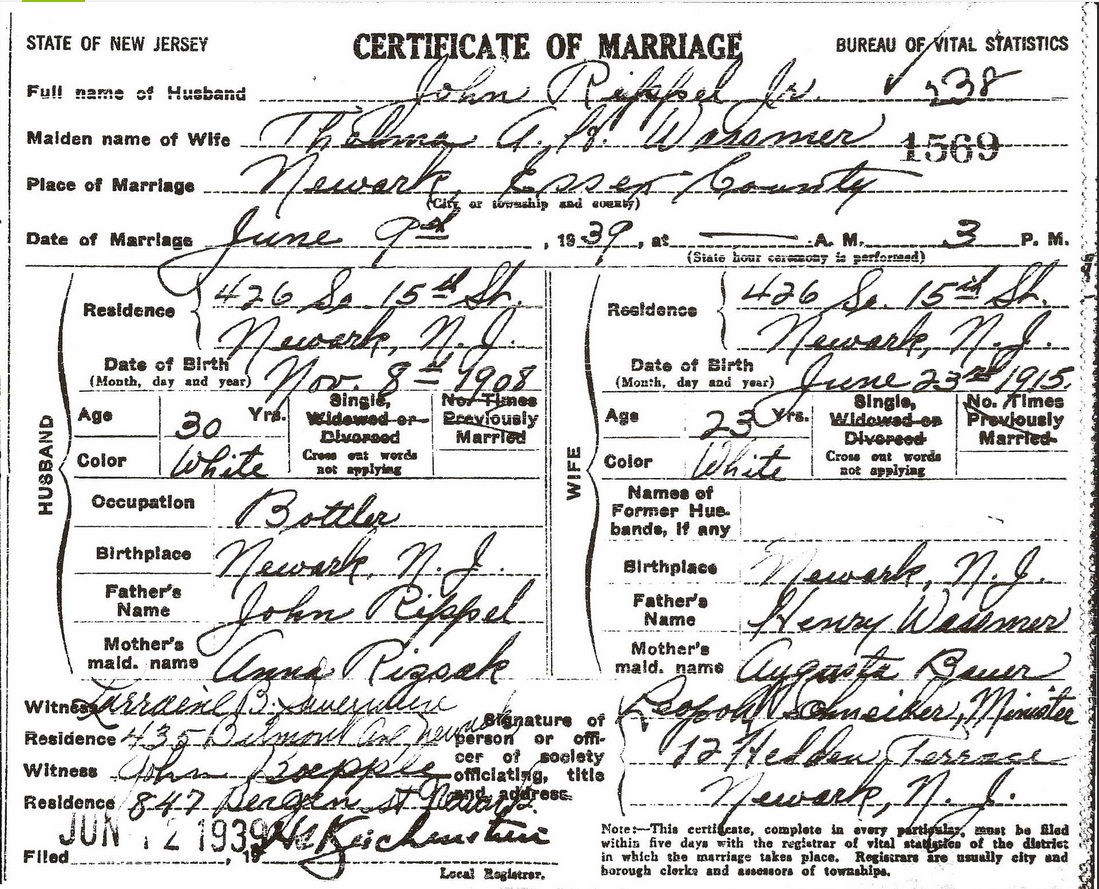 STATE OF NEW JERSEY CERTIFICATE OF MARRIAGE BUREAU OF VITAL STATISTICS
Full name of Husband John Rippel Jr. ✓ 238
Maiden name of Wife Thelma A. Wassmer 1569
Place of Marriage Newark, Essex County
(City or township and county)
Date of Marriage June 9th, 1939, at — A. M. 3 P. M.
(State hour ceremony is performed)
HUSBAND
Residence 426 So. 15th St.
Newark, N. J.
Date of Birth
(Month, day and year) Nov. 8th 1908
Age 30 Yrs. Single, Widowed or Divorced No. Times Previously Married
Color White Cross out words not applying
Occupation Bottler
Birthplace Newark, N. J.
Father's Name John Rippel
Mother's maid. name Anna Rizsak
WIFE
Residence 426 So. 15th St.
Newark, N. J.
Date of Birth
(Month, day and year) June 23rd 1915.
Age 23 Yrs. Single, Widowed or Divorced No. Times Previously Married
Color White Cross out words not applying
Names of Former Husbands, if any
Birthplace Newark, N. J.
Father's Name Henry Wassmer
Mother's maid. name Augusta Bauer
Witness Lorraine B.
Residence 435 Belmont Ave Newark
Witness John Boepple
Residence 847 Bergen st Newark
JUN 12 1939
Filed , 19
Local Registrar.
Signature of person or officer of society officiating, title and address
Leopold Schneiker, Minister
12 Hedden Terrace
Newark, N. J.
Note:—This certificate, complete in every particular, must be filed
within five days with the registrar of vital statistics of the district
in which the marriage takes place. Registrars are usually city and
borough clerks and assessors of townships.